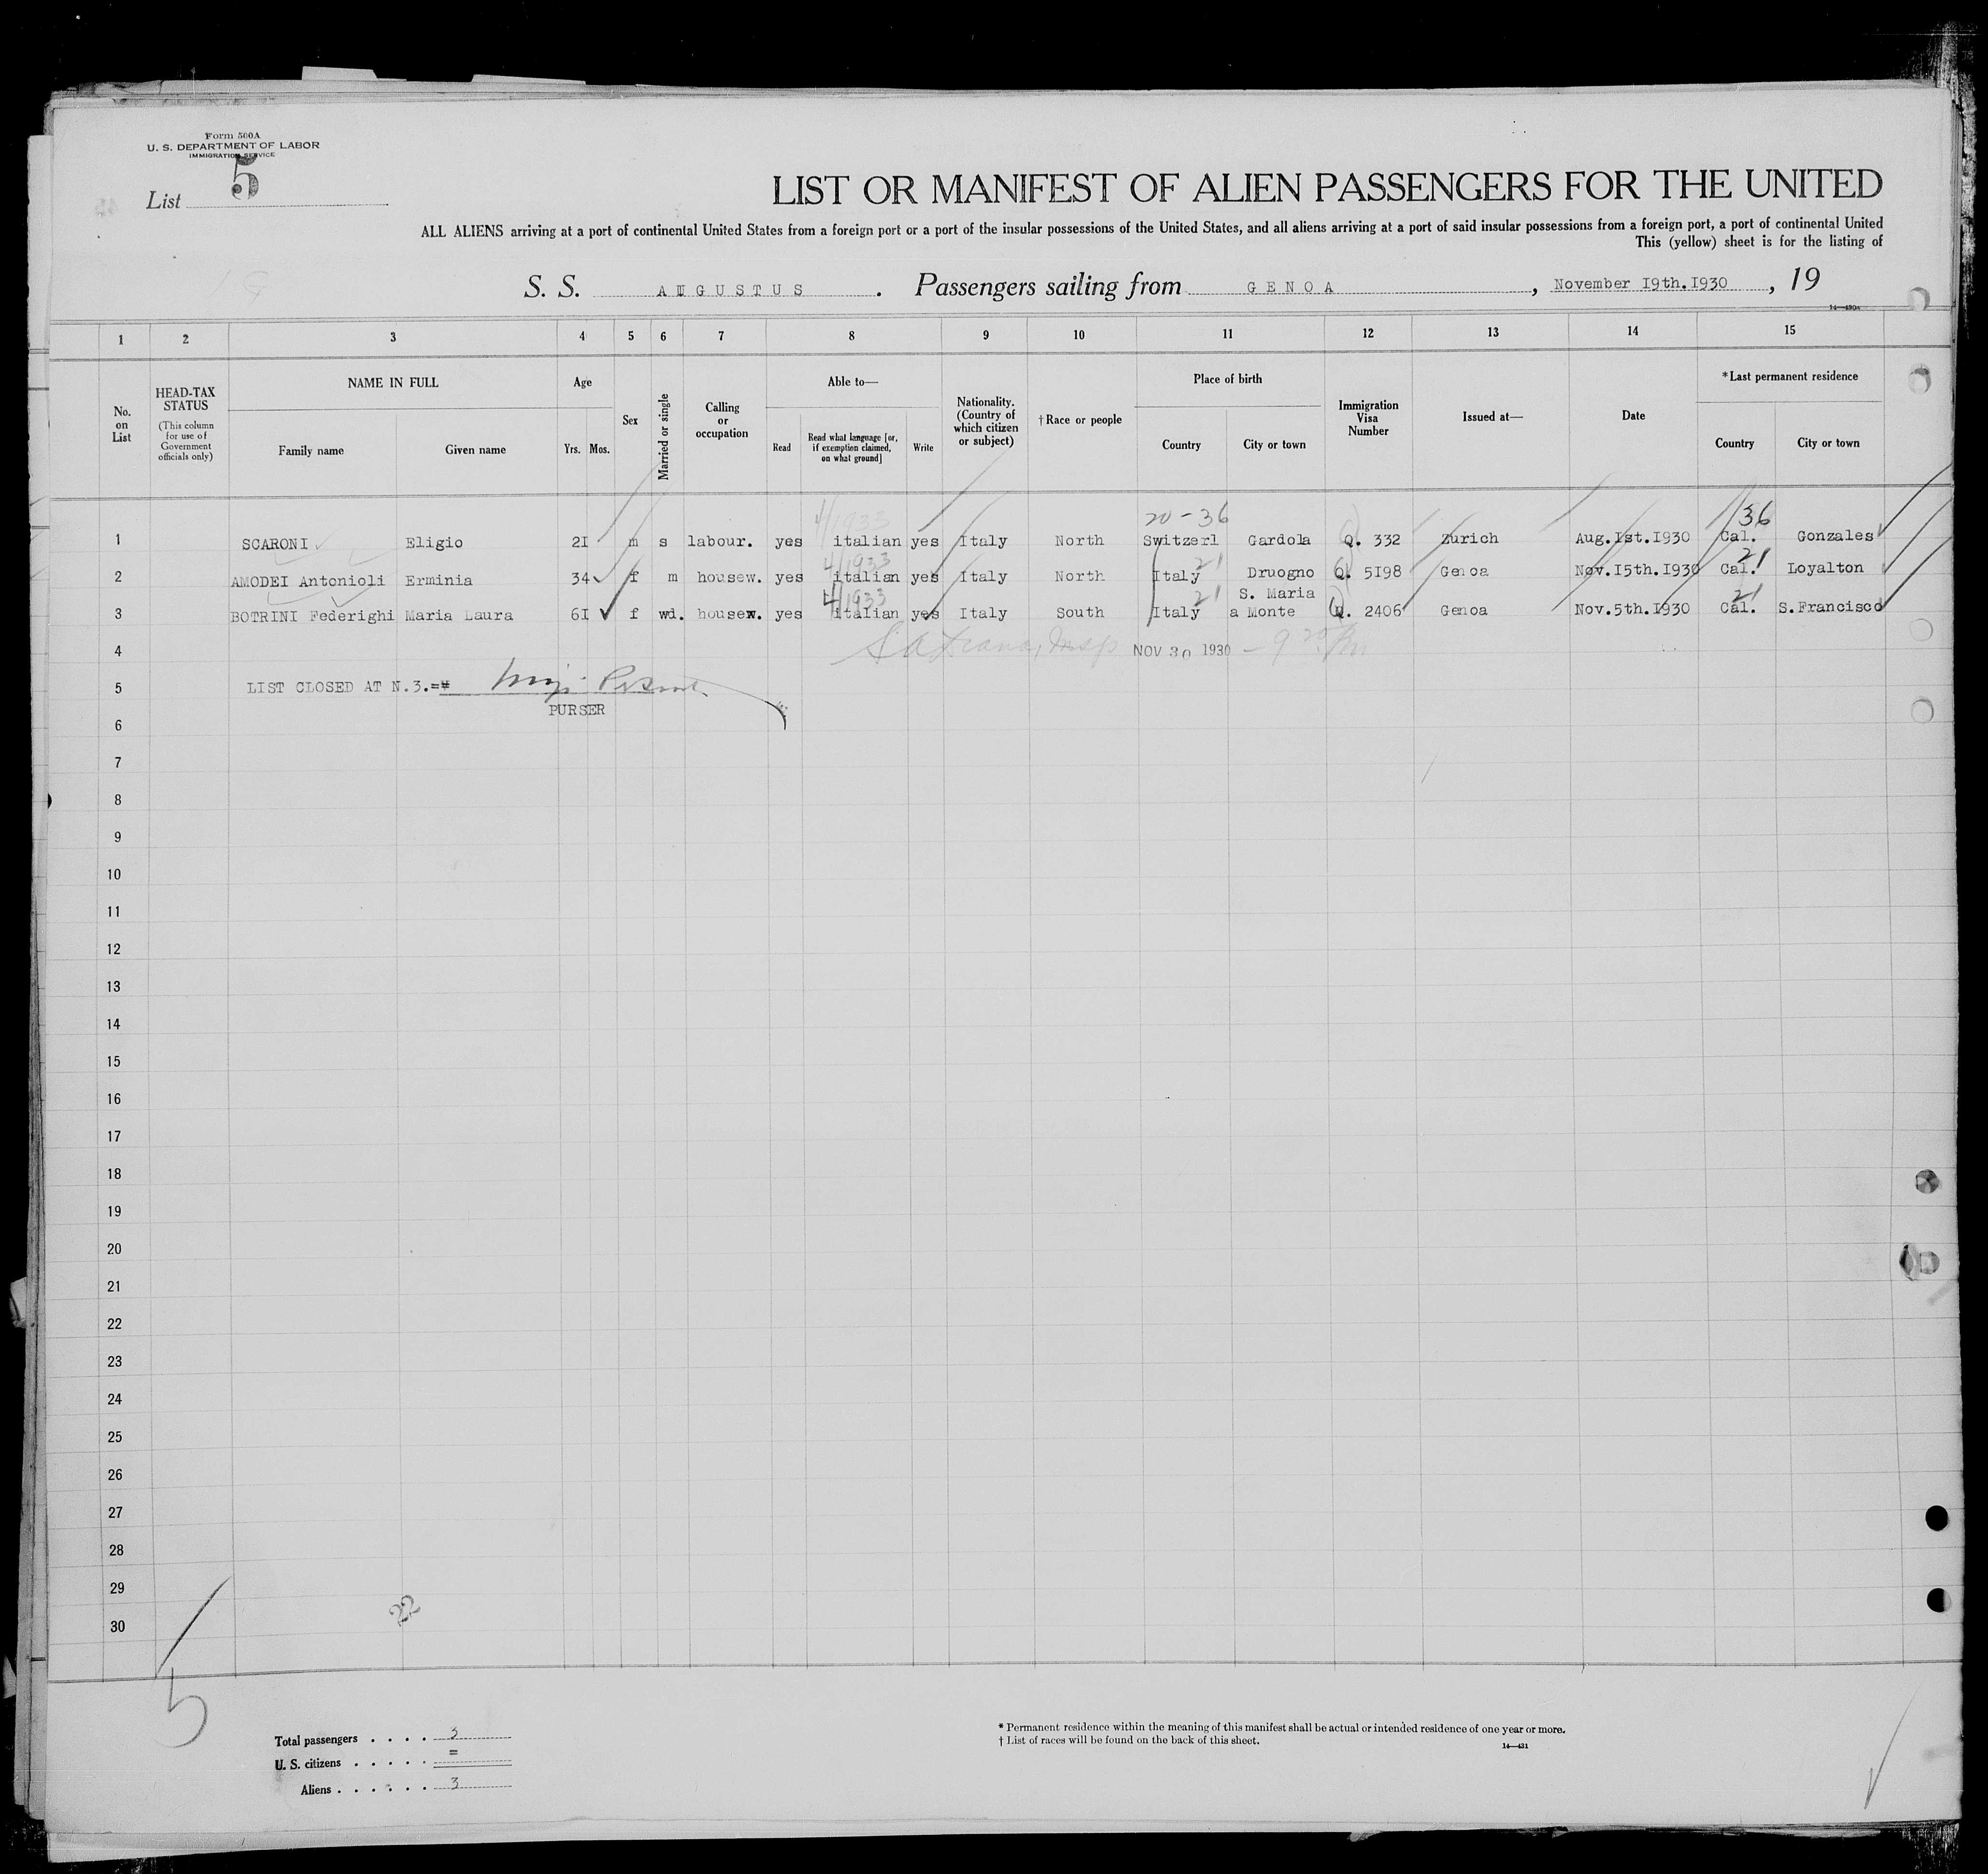 Form 500A
U. S. DEPARTMENT OF LABOR
IMMIGRATION SERVICE
List 5
LIST OR MANIFEST OF ALIEN PASSENGERS FOR THE UNITED
ALL ALIENS arriving at a port of continental United States from a foreign port or a port of the insular possessions of the United States, and all aliens arriving at a port of said insular possessions from a foreign port, a port of continental United
This (yellow) sheet is for the listing of
S. S. AUGUSTUS. Passengers sailing from GENOA, November I9th.I930, 19
14—430A
1 2 3 4 5 6 7 8 9 10 11 12 13 14 15
No. on List
HEAD-TAX STATUS (This column for use of Government officials only)
NAME IN FULL Family name Given name
Age Yrs. Mos.
Sex
Married or single
Calling or occupation
Able to— Read Read what language [or, if exemption claimed, on what ground] Write
Nationality. (Country of which citizen or subject)
†Race or people
Place of birth Country City or town
Immigration Visa Number
Issued at—
Date
*Last permanent residence Country City or town
4/1933 20-36 36
1 SCARONI Eligio 2I m s labour. yes italian yes Italy North Switzerl Gardola Q. 332 Zurich Aug.Ist.I930 Cal. Gonzales
4/1933 21 21
2 AMODEI Antonioli Erminia 34 f m housew. yes italian yes Italy North Italy Druogno Q. 5I98 Genoa Nov.I5th.I930 Cal. Loyalton
4/1933 21 21
3 BOTRINI Federighi Maria Laura 6I f wd. housew. yes italian yes Italy South Italy S. Maria a Monte Q. 2406 Genoa Nov.5th.I930 Cal. S.Francisco
4 NOV 30 1930
5 LIST CLOSED AT N.3.=
PURSER
6
7
8
9
10
11
12
13
14
15
16
17
18
19
20
21
22
23
24
25
26
27
28
29
30
22
5
Total passengers . . . . 3
U. S. citizens . . . . . =
Aliens . . . . . . 3
* Permanent residence within the meaning of this manifest shall be actual or intended residence of one year or more.
† List of races will be found on the back of this sheet.
14—431